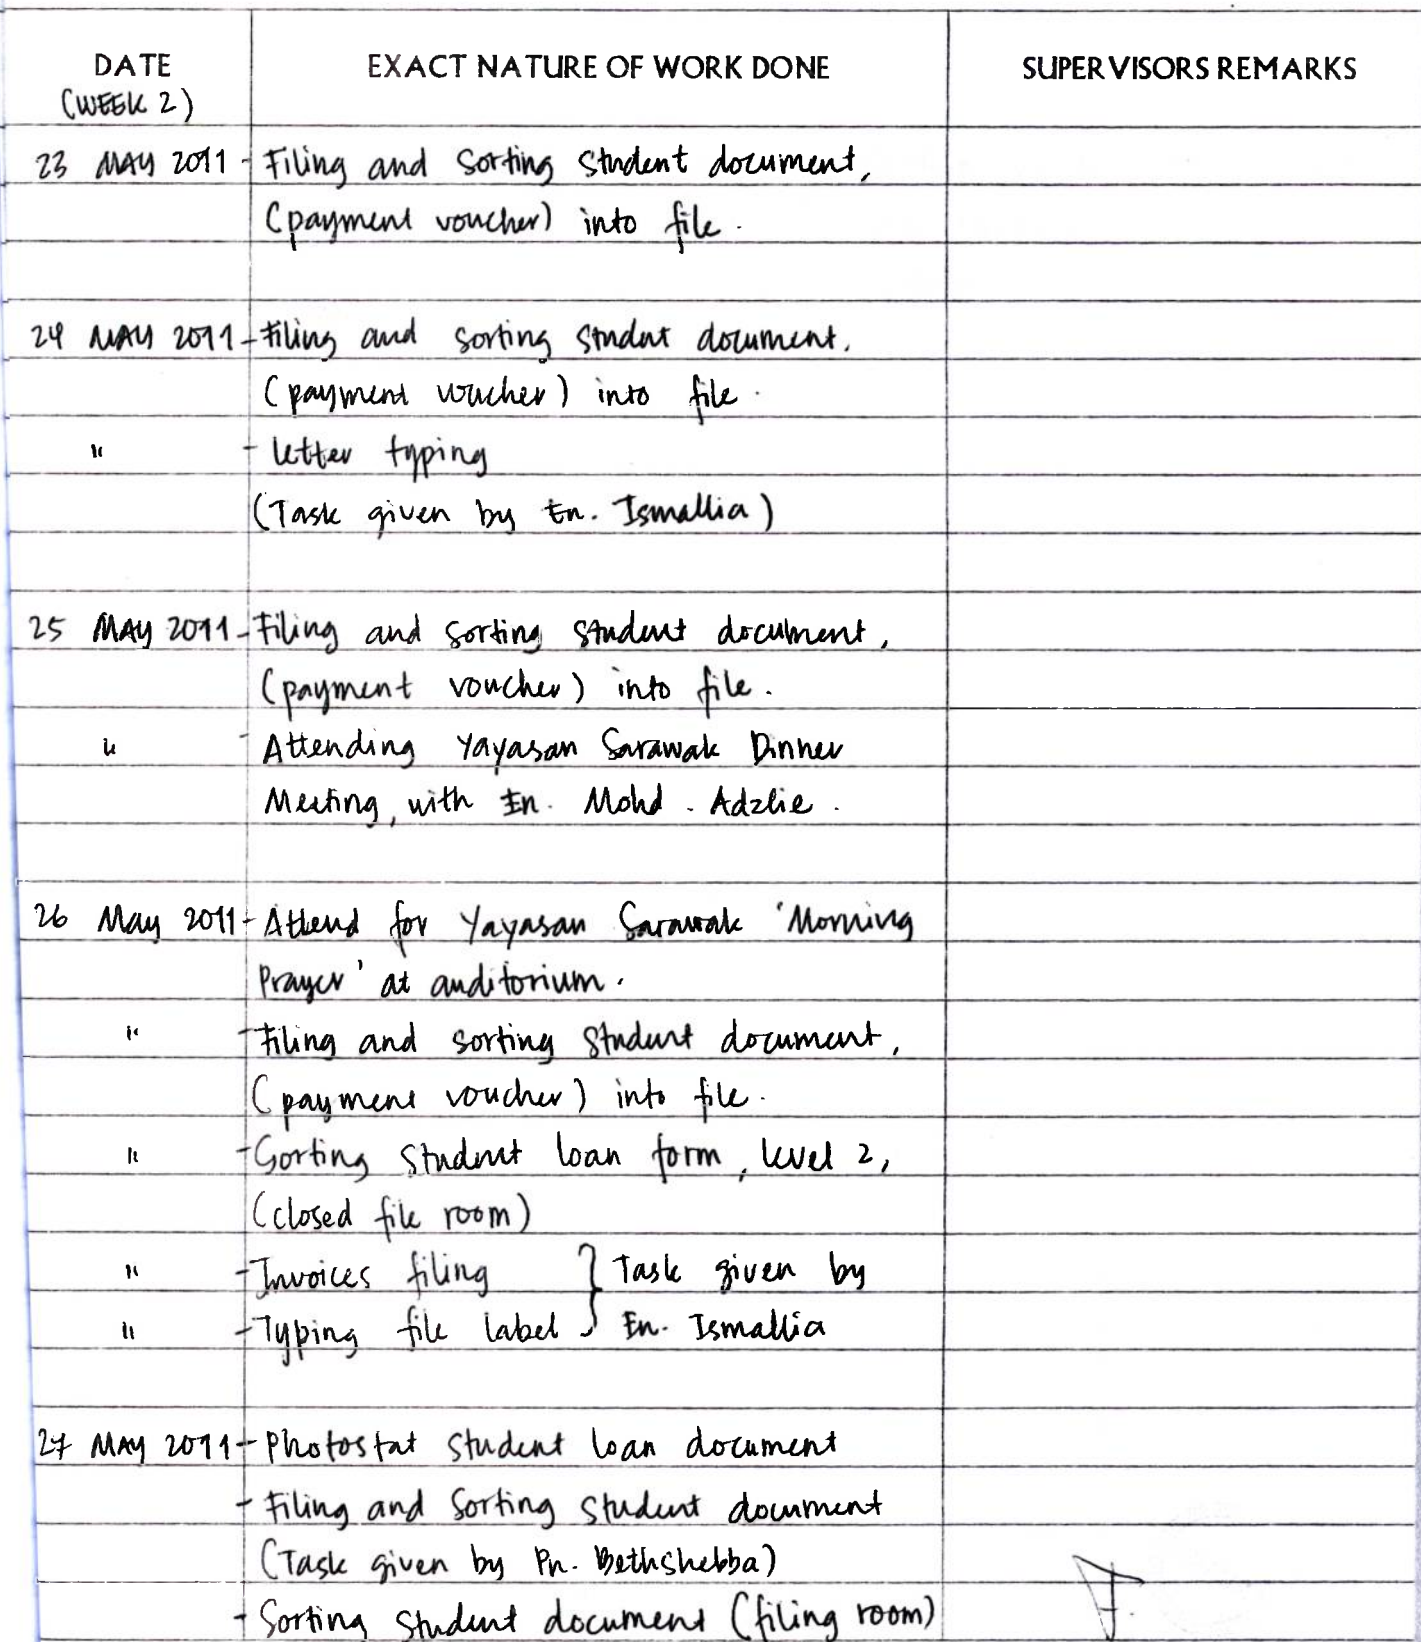 DATE EXACT NATURE OF WORK DONE SUPERVISORS REMARKS
(WEEK 2)
23 MAY 2011 - Filing and Sorting Student document,
(payment voucher) into file.
24 MAY 2011 - Filing and sorting student document.
(payment voucher) into file.
" - letter typing
(Task given by En. Ismallia)
25 MAY 2011 - Filing and sorting student document,
(payment voucher) into file.
" - Attending Yayasan Sarawak Dinner
Meeting, with En. Mohd. Adzlie.
26 May 2011 - Attend for Yayasan Sarawak 'Morning
Prayer' at auditorium.
" - Filing and sorting student document,
(payment voucher) into file.
" - Sorting student loan form, level 2,
(closed file room)
" - Invoices filing } Task given by
" - Typing file label } En. Ismallia
27 MAY 2011 - Photostat student loan document
- Filing and Sorting student document
(Task given by Pn. Bethshebba)
- Sorting student document (filing room)